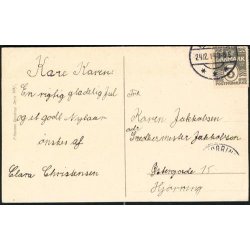 Kære Karen
En rigtig glædelig jul
og et godt Nytaar
ønskes af
Clara Christensen
24.12.
DANMARK
Karen Jakkobsen
adr
Snedkermester Jakkobsen
Østergade 15
Hjørring